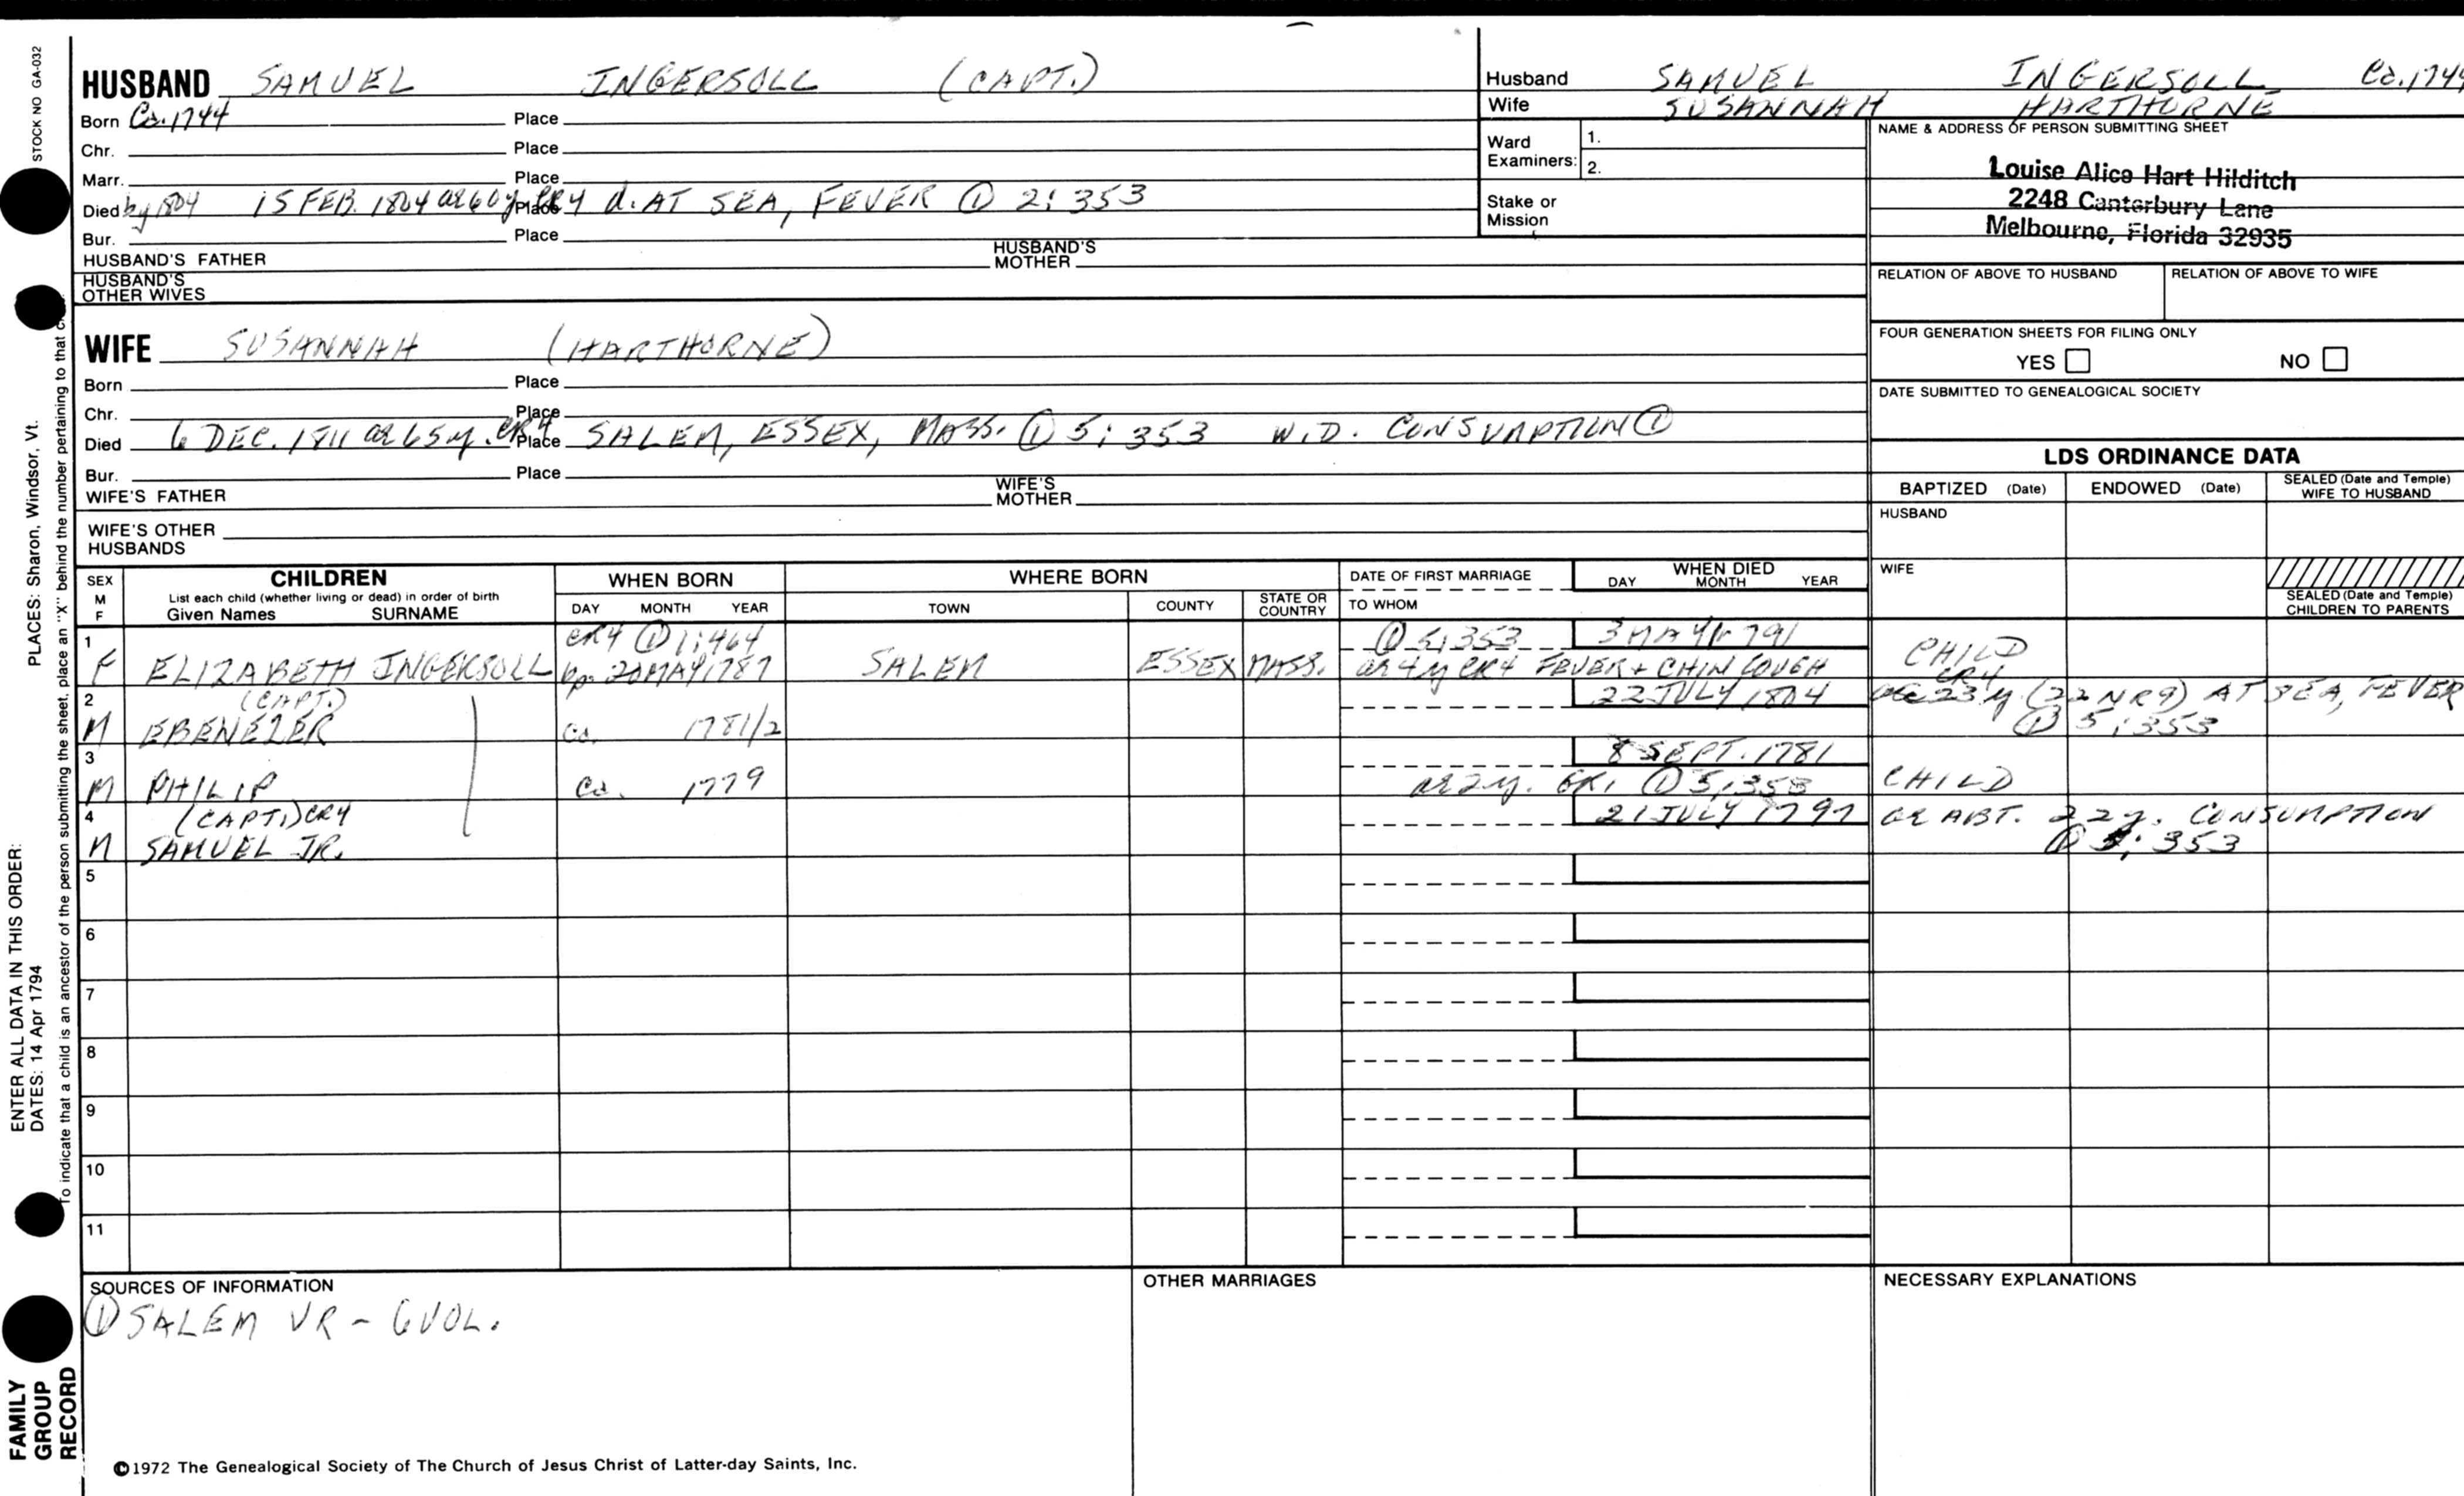 STOCK NO GA-032
PLACES: Sharon, Windsor, Vt.
ENTER ALL DATA IN THIS ORDER:
DATES: 14 Apr 1794
To indicate that a child is an ancestor of the person submitting the sheet, place an "X" behind the number pertaining to that
FAMILY
GROUP
RECORD
HUSBAND SAMUEL INGERSOLL (CAPT.)
Born Ca. 1744 Place
Chr. Place
Marr. Place
Died by 1804 15 FEB. 1804 ae 60y CR4 Place d. AT SEA, FEVER ① 2:353
Bur. Place
HUSBAND'S FATHER HUSBAND'S MOTHER
HUSBAND'S OTHER WIVES
WIFE SUSANNAH (HARTHORNE)
Born Place
Chr. Place
Died 6 DEC. 1811 ae 65y. CR4 Place SALEM, ESSEX, MASS. ① 5:353 W.D. CONSUMPTION ①
Bur. Place
WIFE'S FATHER WIFE'S MOTHER
WIFE'S OTHER HUSBANDS
Husband SAMUEL INGERSOLL Ca. 1744
Wife SUSANNAH HARTHORNE
Ward Examiners: 1.
2.
Stake or Mission
NAME & ADDRESS OF PERSON SUBMITTING SHEET
Louise Alice Hart Hilditch
2248 Canterbury Lane
Melbourne, Florida 32935
RELATION OF ABOVE TO HUSBAND RELATION OF ABOVE TO WIFE
FOUR GENERATION SHEETS FOR FILING ONLY
YES NO
DATE SUBMITTED TO GENEALOGICAL SOCIETY
LDS ORDINANCE DATA
BAPTIZED (Date) ENDOWED (Date) SEALED (Date and Temple) WIFE TO HUSBAND
HUSBAND
WIFE
SEALED (Date and Temple) CHILDREN TO PARENTS
SEX M F
CHILDREN
List each child (whether living or dead) in order of birth
Given Names SURNAME
WHEN BORN
DAY MONTH YEAR
WHERE BORN
TOWN COUNTY STATE OR COUNTRY
DATE OF FIRST MARRIAGE
TO WHOM
WHEN DIED
DAY MONTH YEAR
1 CR4 ① 1:464 ① 5:353 3 MAY 1791 CHILD
F ELIZABETH INGERSOLL bp. 20 MAY 1787 SALEM ESSEX MASS. ae 4y CR4 FEVER + CHIN COUGH
2 (CAPT.) 22 JULY 1804 CR4 ae 23 y (22 NR9) AT SEA, FEVER
M EBENEZER ca. 1781/2 ① 5:353
3 8 SEPT. 1781
M PHILIP Ca. 1779 ae 2y. GR1 ① 5:353 CHILD
4 (CAPT.) CR4 21 JULY 1797 ae ABT. 22y. CONSUMPTION
M SAMUEL JR. ① 5:353
5
6
7
8
9
10
11
SOURCES OF INFORMATION
① SALEM VR - 6 VOL.
OTHER MARRIAGES
NECESSARY EXPLANATIONS
©1972 The Genealogical Society of The Church of Jesus Christ of Latter-day Saints, Inc.